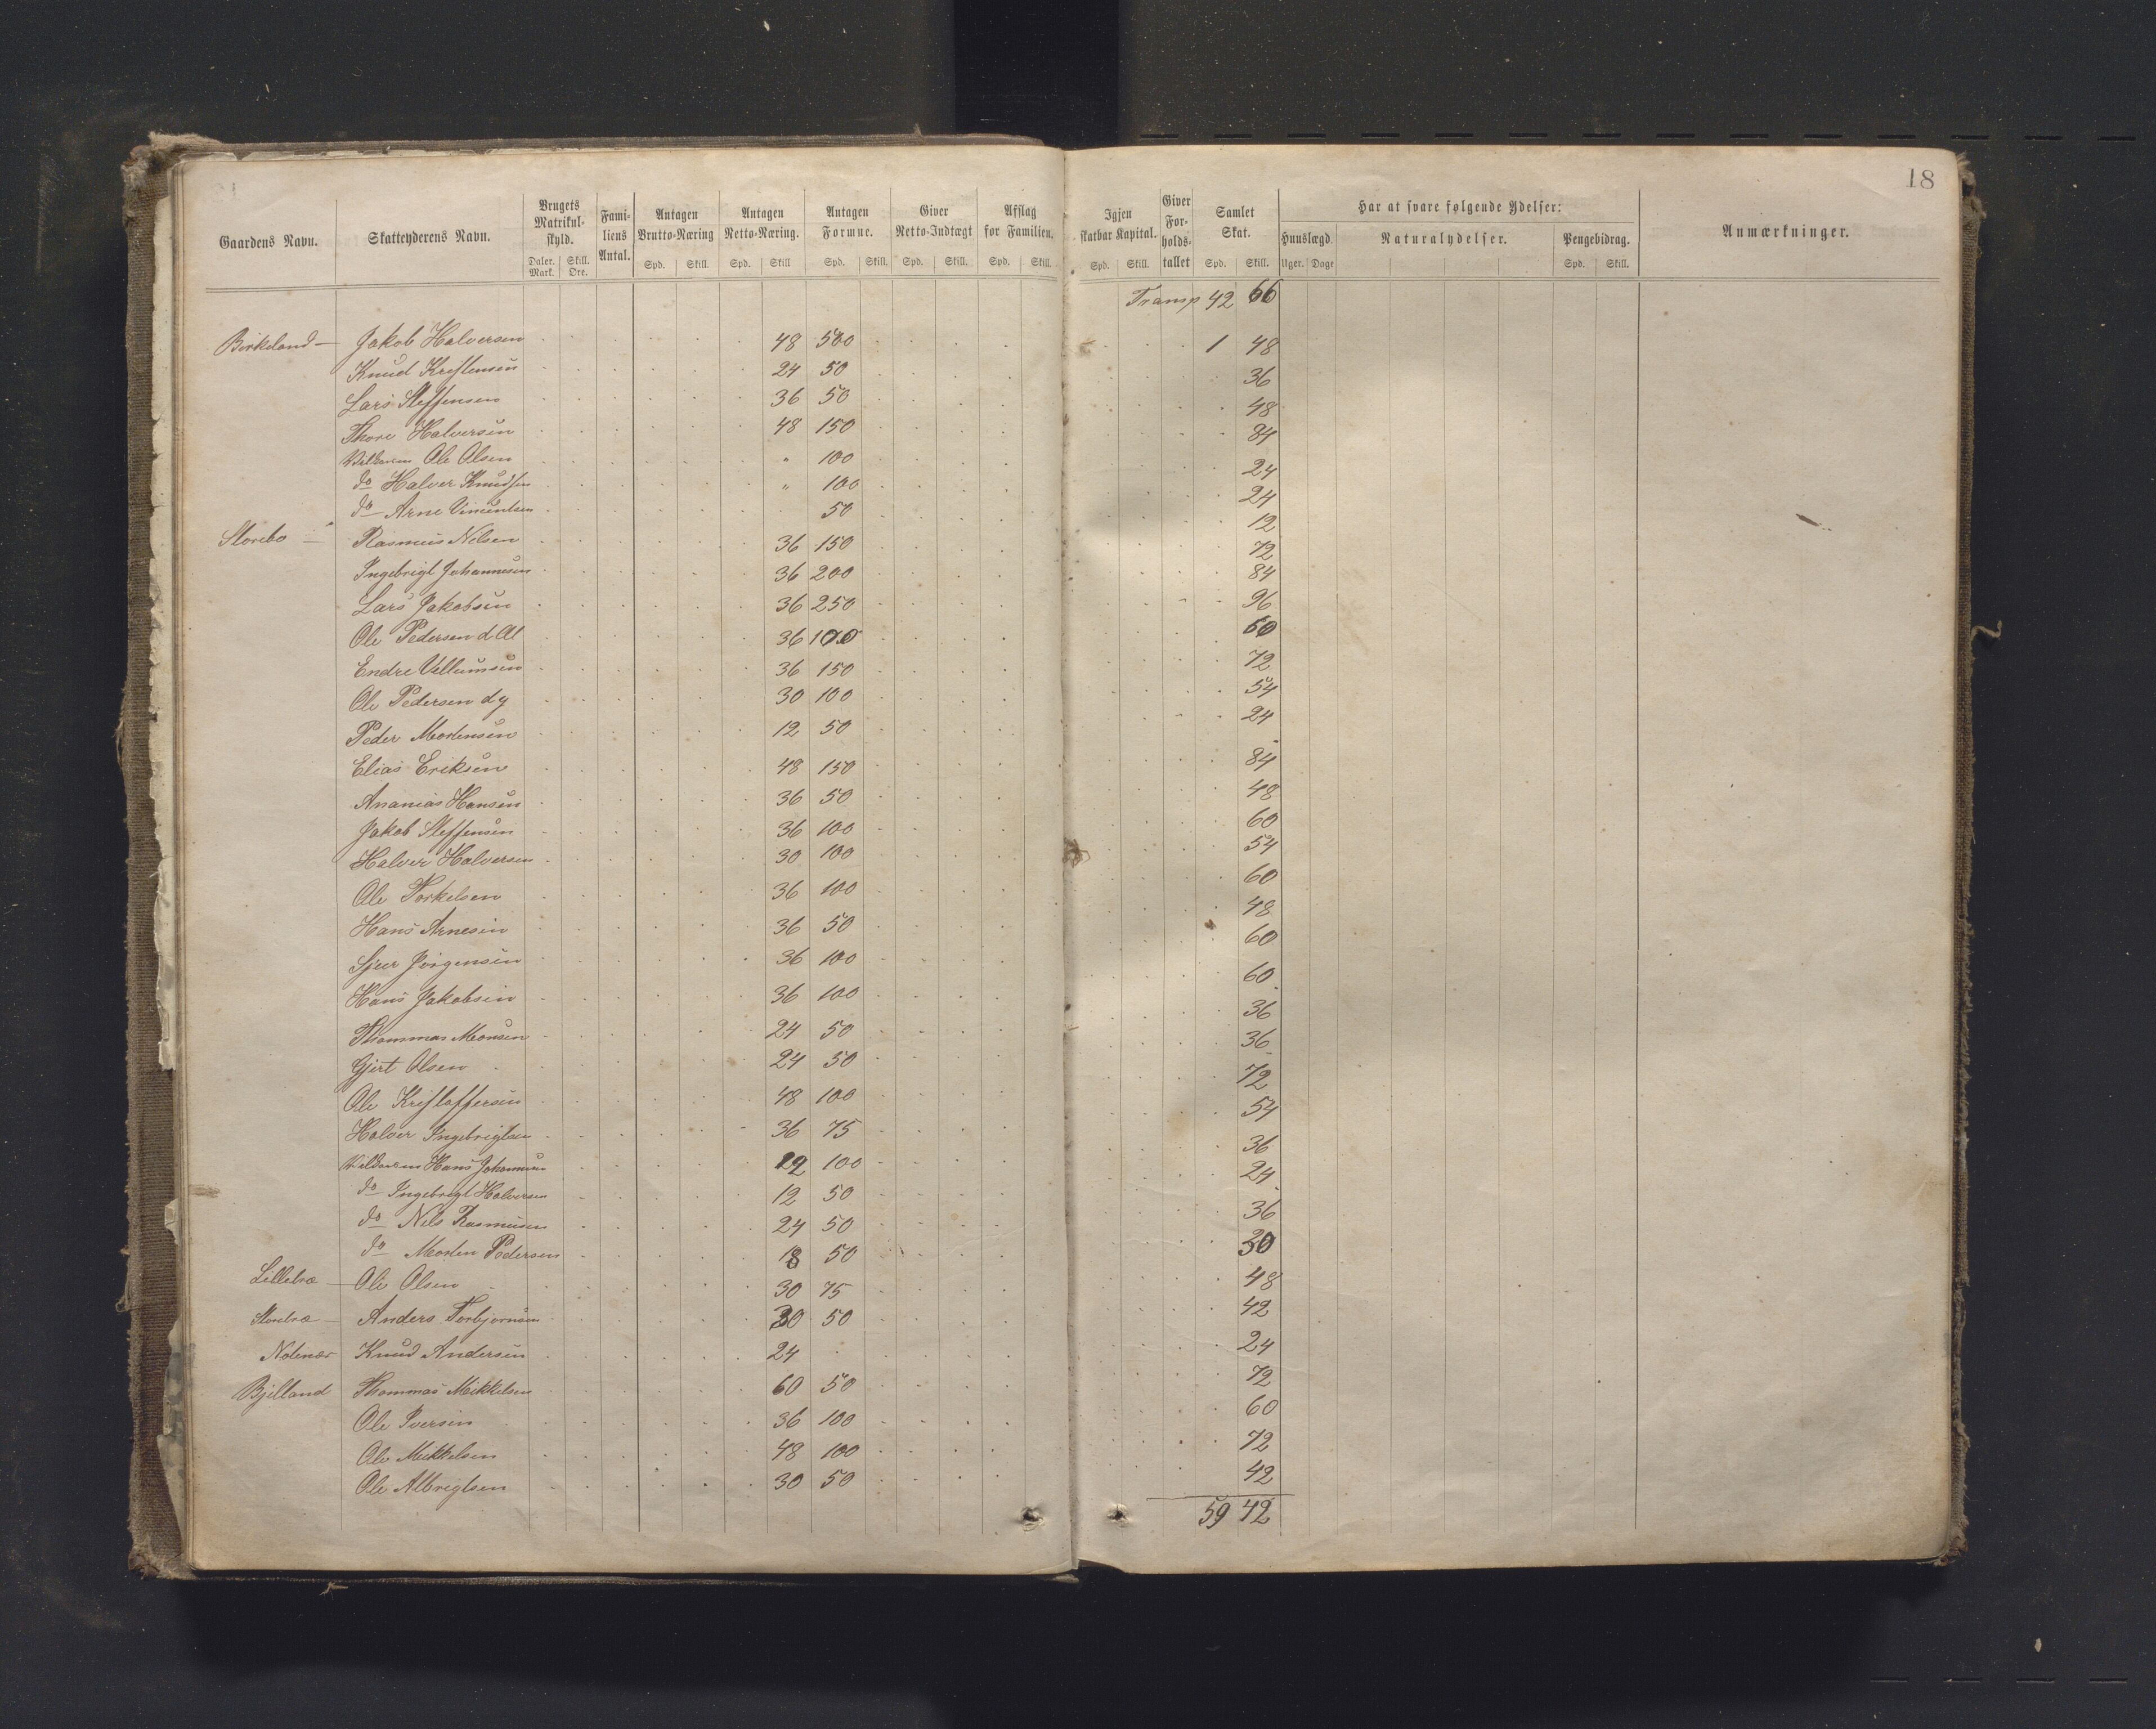 18
Gaardens Navn. Skatteyderens Navn. Brugets Matrikul-skyld. Fami-liens Antal. Antagen Brutto-Næring Antagen Netto-Næring. Antagen Formue. Giver Netto-Indtægt Afslag for Familien. Igjen skatbar Kapital. Giver For-holds-tallet Samlet Skat. Har at svare følgende Ydelser: Anmærkninger.
Huuslægd. Naturalydelser. Pengebidrag.
Daler. Mark. Skill. Øre. Spd. Skill. Spd. Skill Spd. Skill. Spd. Skill. Spd. Skill. Spd. Skill. Spd. Skill. Uger. Dage Spd. Skill.
Transp 42 66
Birkeland — Jakob Halversen 48 500 1 48
Knud Kristensen 24 50 36
Lars Steffensen 36 50 48
Thore Halversen 48 150 84
Ole Olsen " 100 24
do Halver Knudsen " 100 24
do Arne Vincentsen 50 12
Storebø — Rasmus Nilsen 36 150 72
Ingebrigt Johannesen 36 200 84
Lars Jakobsen 36 250 96
Ole Pedersen d. æl 36 100 60
Endre Villumsen 36 150 72
Ole Pedersen d y 30 100 54
Peder Mortensen 12 50 24
Elias Eriksen 48 150 84
Ananias Hansen 36 50 48
Jakob Steffensen 36 100 60
Halver Halversen 30 100 54
Ole Torkelsen 36 100 60
Hans Arnesen 36 50 48
Sjur Jørgensen 36 100 60
Hans Jakobsen 36 100 60
Thommas Monsen 24 50 36
Gjert Olsen 24 50 36
Ole Kristoffersen 48 100 72
Halver Ingebrigtsen 36 75 54
Hans Johannesen 12 100 36
do Ingebrigt Halversen 12 50 24
do Nils Rasmusen 24 50 36
do Morten Pedersen 18 50 30
Lillebræ — Ole Olsen 30 75 48
Storebræ — Anders Torbjørnsen 30 50 42
Notenær Knud Andersen 24 24
Bjelland Thommas Mikkelsen 60 50 72
Ole Iversen 36 100 60
Ole Mikkelsen 48 100 72
Ole Albrigtsen 30 50 42
59 42